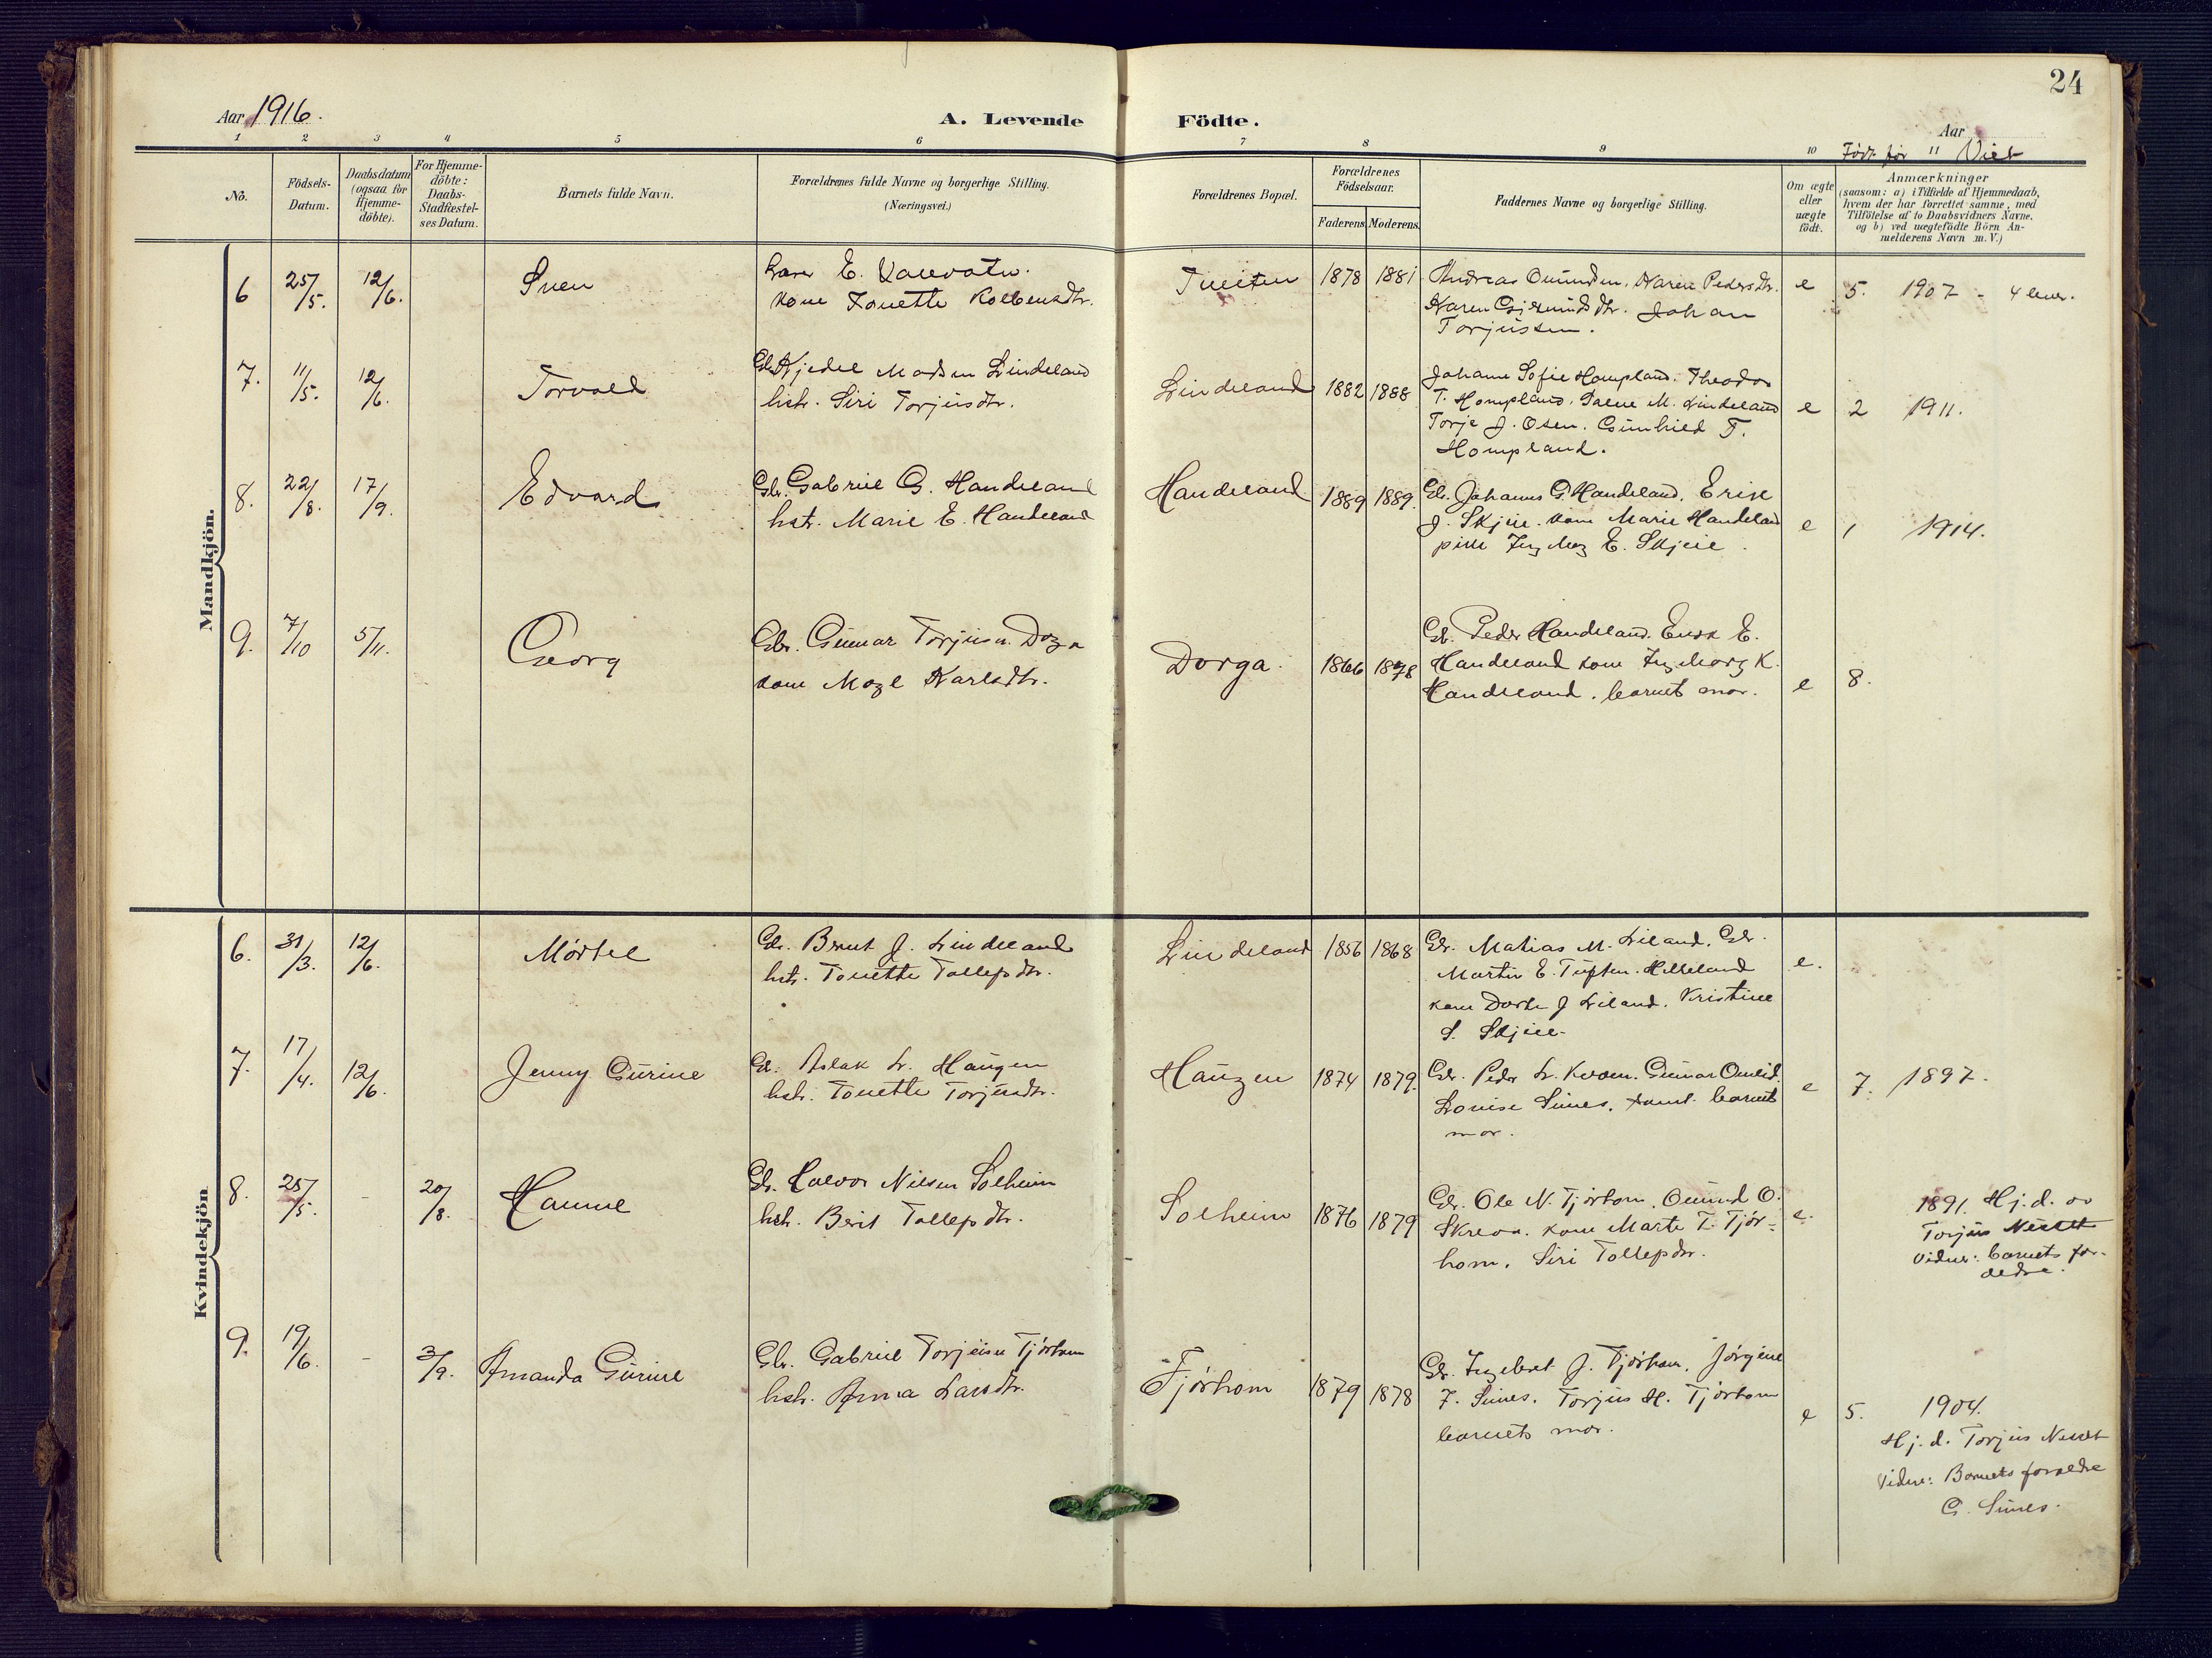 24
Aar 1916.
A. Levende Födte.
Aar
1 2 3 4 5 6 7 8 9 10 11
Født før Viet
No.
Födsels-Datum.
Daabsdatum (ogsaa for Hjemme-döbte).
For Hjemme-döbte: Daabs-Stadfæstel-ses Datum.
Barnets fulde Navn.
Forældrenes fulde Navne og borgerlige Stilling.
(Næringsvei.)
Forældrenes Bopæl.
Forældrenes Födselsaar.
Faderens Moderens
Faddernes Navne og borgerlige Stilling.
Om ægte eller uægte födt.
Anmærkninger
(saasom: a) i Tilfælde af Hjemmedaab,
hvem der har forrettet samme, med
Tilföielse af to Daabsvidners Navne,
og b) ved uægtefödte Börn An-
melderens Navn m. V.)
Mandkjön.
6 25/5. 12/6. Sven
Lærer E.
kone Tonette Kolbensdtr.
Tveiten 1878 1881
Andreas Omundsen, Karen Pedersdtr.
Karen Gjermundsdtr. Johan
Torjussen.
e 5. 1907 - 4 lever.
7. 11/5. 12/6. Torvald
Gbr. Kjedel Madsen Lindeland
hstr. Siri Torjusdtr.
Lindeland 1882 1888
Johanne Sofie Hompland. Theodor
T. Hompland, Salve M. Lindeland
Torje J. Osen. Gunhild T.
Hompland.
e 2 1911.
8. 22/8. 17/9. Edvard
Gbr. Gabriel G. Handeland
hstr. Marie E. Handeland
Handeland 1889 1889.
Gb. Johannes G. Handeland, Erik
J. Skjeie. kone Marie Handeland
pike Ingeborg E. Skjeie.
e 1 1914.
9. 7/10 5/11. Georg
Gbr. Gunnar Torjusn. Dorga
kone Magl Karlsdtr.
Dorga. 1866 1878
Gb. Peder Handeland. Enok E.
Handeland kone Ingeborg K.
Handeland. barnets mor.
e 8.
Kvindekjön
6. 31/3. 12/6. Mørtel
Gbr. Bernt J. Lindeland
hstr. Tonette Tollepsdtr.
Lindeland 1856 1868
Gbr. Matias M. Liland, Gbr.
Martin E. Tuften. Helleland
kone Dorte J Liland. Kristine
S. Skjeie.
e.
7. 17/4. 12/6. Jenny Gurine
Gb. Aslak L. Haugen
hstr. Tonette Torjusdtr.
Haugen 1874 1879.
Gbr. Peder L. Kvæven. Gunnar Omlid.
Lovise Sines, samt barnets
mor.
e 7. 1897.
8. 25/5. - 20/8. Hanne
Gb. Halvor Nilsen Solheim
hstr. Berit Tollepsdtr.
Solheim 1876 1879
Gbr. Ole N. Tjørhom, Omund O.
Skreaa. kone Marte T. Tjør-
hom, Siri Tollepsdtr.
e. 1891. Hj.d. av
Torjus Nesset
Vidner: barnets for-
ældre.
9. 19/6. - 3/9. Amanda Gurine
Gbr. Gabriel Torjusen Tjørhom
hstr. Anna Larsdtr.
Tjørhom 1879 1878
Gb. Ingebret J. Tjørhom, Jørgine
T. Sines. Torjus H. Tjørhom
barnets mor.
e 5. 1904.
Hj. d. Torjus Nesset
Vidner: Barnets forældre
G. Sines.